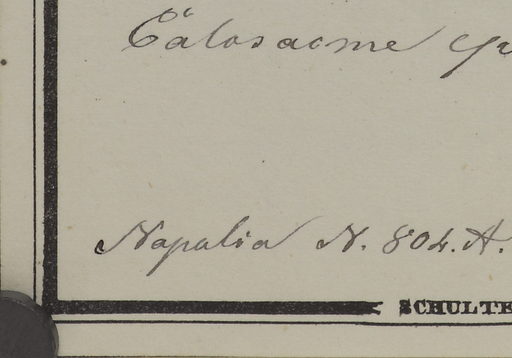 Calosacme
Napalia N. 804. A.
SCHULTE